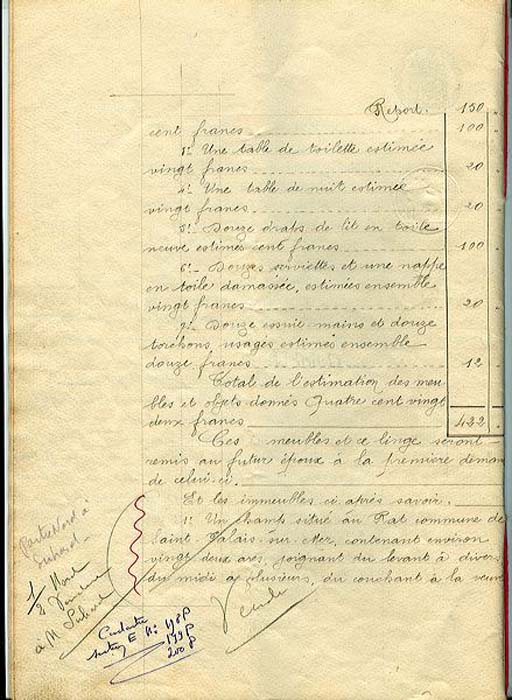 Report. 150
cent francs 100
3° Une table de toilette estimée
vingt francs 20
4° Une table de nuit estimée
vingt francs 20
5° Douze draps de lit en toile
neuve estimés cent francs 100
6° Douzes serviettes et une nappe
en toile damassée, estimées ensemble
vingt francs 20
7° Douze essuie mains et douze
torchons, usagés estimés ensemble
douze francs 12
Total de l'estimation des meu
bles et objets donnés Quatre cent vingt
deux francs 422
Ces meubles et ce linge seront
remis au futur époux à la première deman
de celui-ci.
Et les immeubles ci après savoir.
1° Un champ situé au Rat commune de
Saint-Palais-sur-Mer, contenant environ
vingt deux ares, joignant du levant à divers
du midi à plusieurs, du couchant à la veuve
Partie Nord à
Suhard
1/2 Nord
Vendu
à M. Suhard
Cadastre
section E N° 198 P
199 P
200 P
Vendu